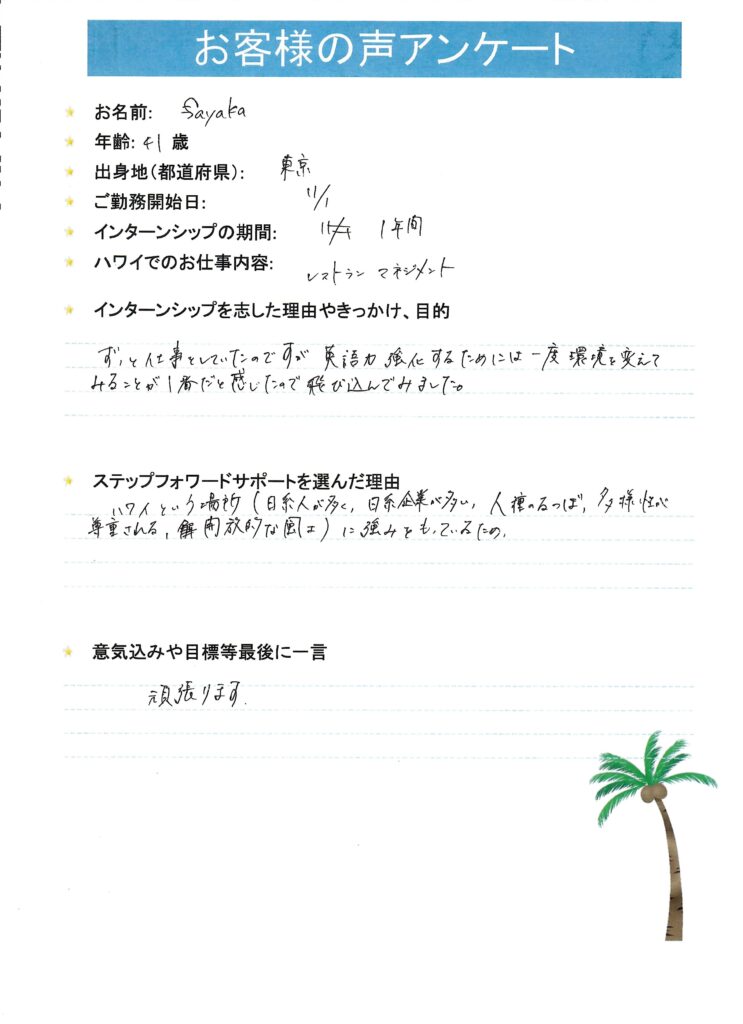 お客様の声アンケート
お名前: Sayaka
年齢: 41 歳
出身地(都道府県): 東京
ご勤務開始日: 11/1
インターンシップの期間: 1年間
ハワイでのお仕事内容: レストラン マネジメント
インターンシップを志した理由やきっかけ、目的
ずっと仕事をしていたのですが 英語力強化するためには一度環境を変えて
みることが1番だと感じたので飛び込んでみました。
ステップフォワードサポートを選んだ理由
ハワイという場所(日系人が多く、日系企業が多い、人種のるつぼ、多様性が
尊重される、開放的な風土)に強みをもっているため。
意気込みや目標等最後に一言
頑張ります.